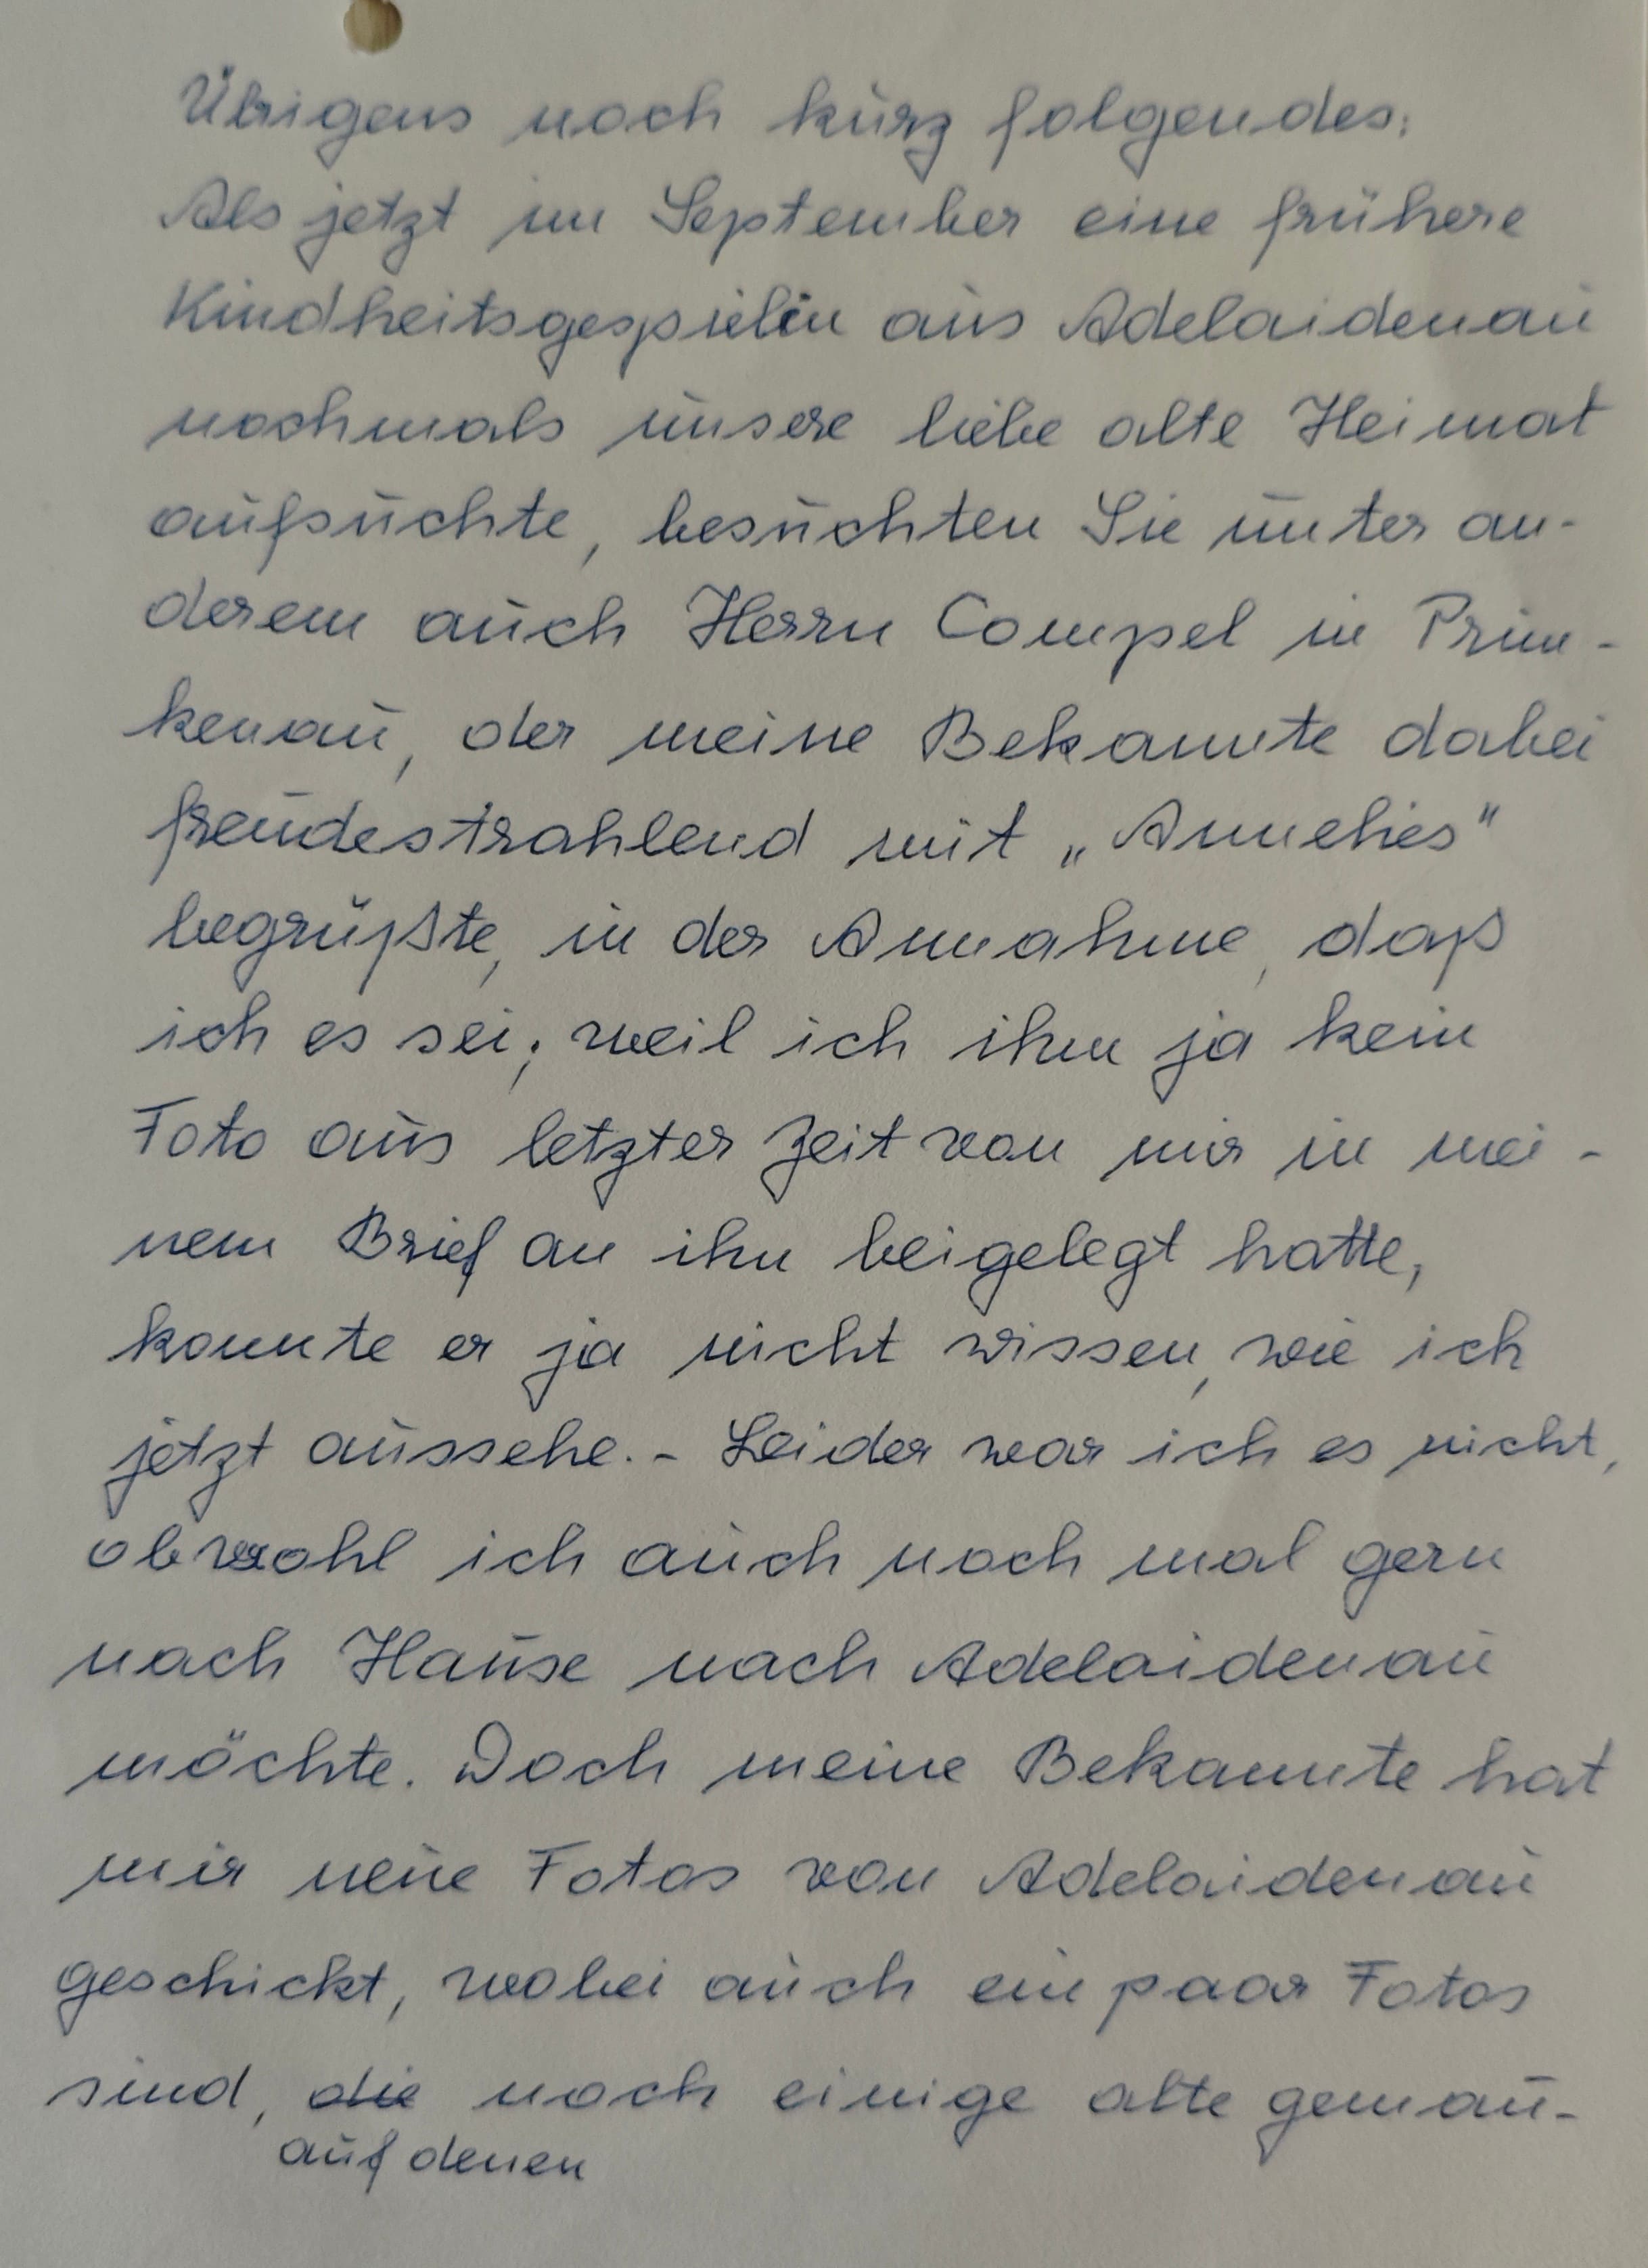 Übrigens noch kurz folgendes:
Als jetzt im September eine frühere
Kindheitsgespielin aus Adelaidenau
nochmals unsere liebe alte Heimat
aufsuchte, besuchten Sie unter an-
derem auch Herrn Compel in Prim-
kenau, der meine Bekannte dabei
freudestrahlend mit „Annelies"
begrüßte, in der Annahme, daß
ich es sei; weil ich ihm ja kein
Foto aus letzter Zeit von mir in mei-
nem Brief an ihn beigelegt hatte,
konnte er ja nicht wissen, wie ich
jetzt aussehe. - Leider war ich es nicht,
obwohl ich auch noch mal gern
nach Hause nach Adelaidenau
möchte. Doch meine Bekannte hat
mir neue Fotos von Adelaidenau
geschickt, wobei auch ein paar Fotos
sind, die noch einige alte gemau-
auf denen